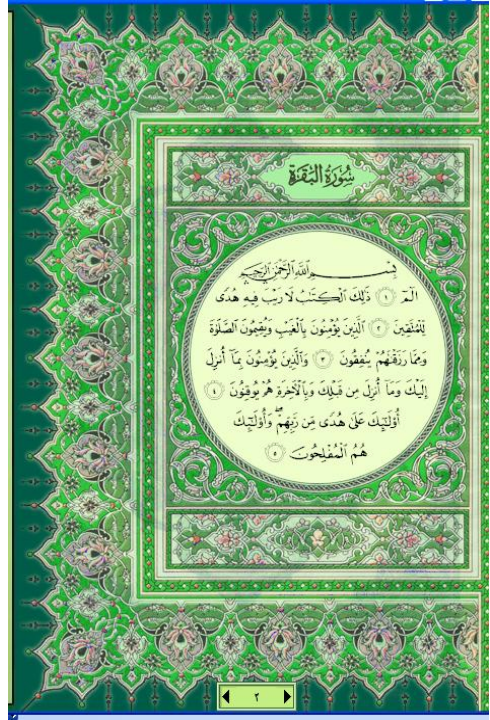 سُورَةُ البَقَرَةِ
بِسْمِ اللَّهِ الرَّحْمَٰنِ الرَّحِيمِ
الٓمٓ ١ ذَٰلِكَ ٱلْكِتَٰبُ لَا رَيْبَ فِيهِ هُدًى
لِّلْمُتَّقِينَ ٢ ٱلَّذِينَ يُؤْمِنُونَ بِٱلْغَيْبِ وَيُقِيمُونَ ٱلصَّلَوٰةَ
وَمِمَّا رَزَقْنَٰهُمْ يُنفِقُونَ ٣ وَٱلَّذِينَ يُؤْمِنُونَ بِمَآ أُنزِلَ
إِلَيْكَ وَمَآ أُنزِلَ مِن قَبْلِكَ وَبِٱلْأَخِرَةِ هُمْ يُوقِنُونَ ٤
أُو۟لَٰٓئِكَ عَلَىٰ هُدًى مِّن رَّبِّهِمْ ۖ وَأُو۟لَٰٓئِكَ
هُمُ ٱلْمُفْلِحُونَ ٥
٢